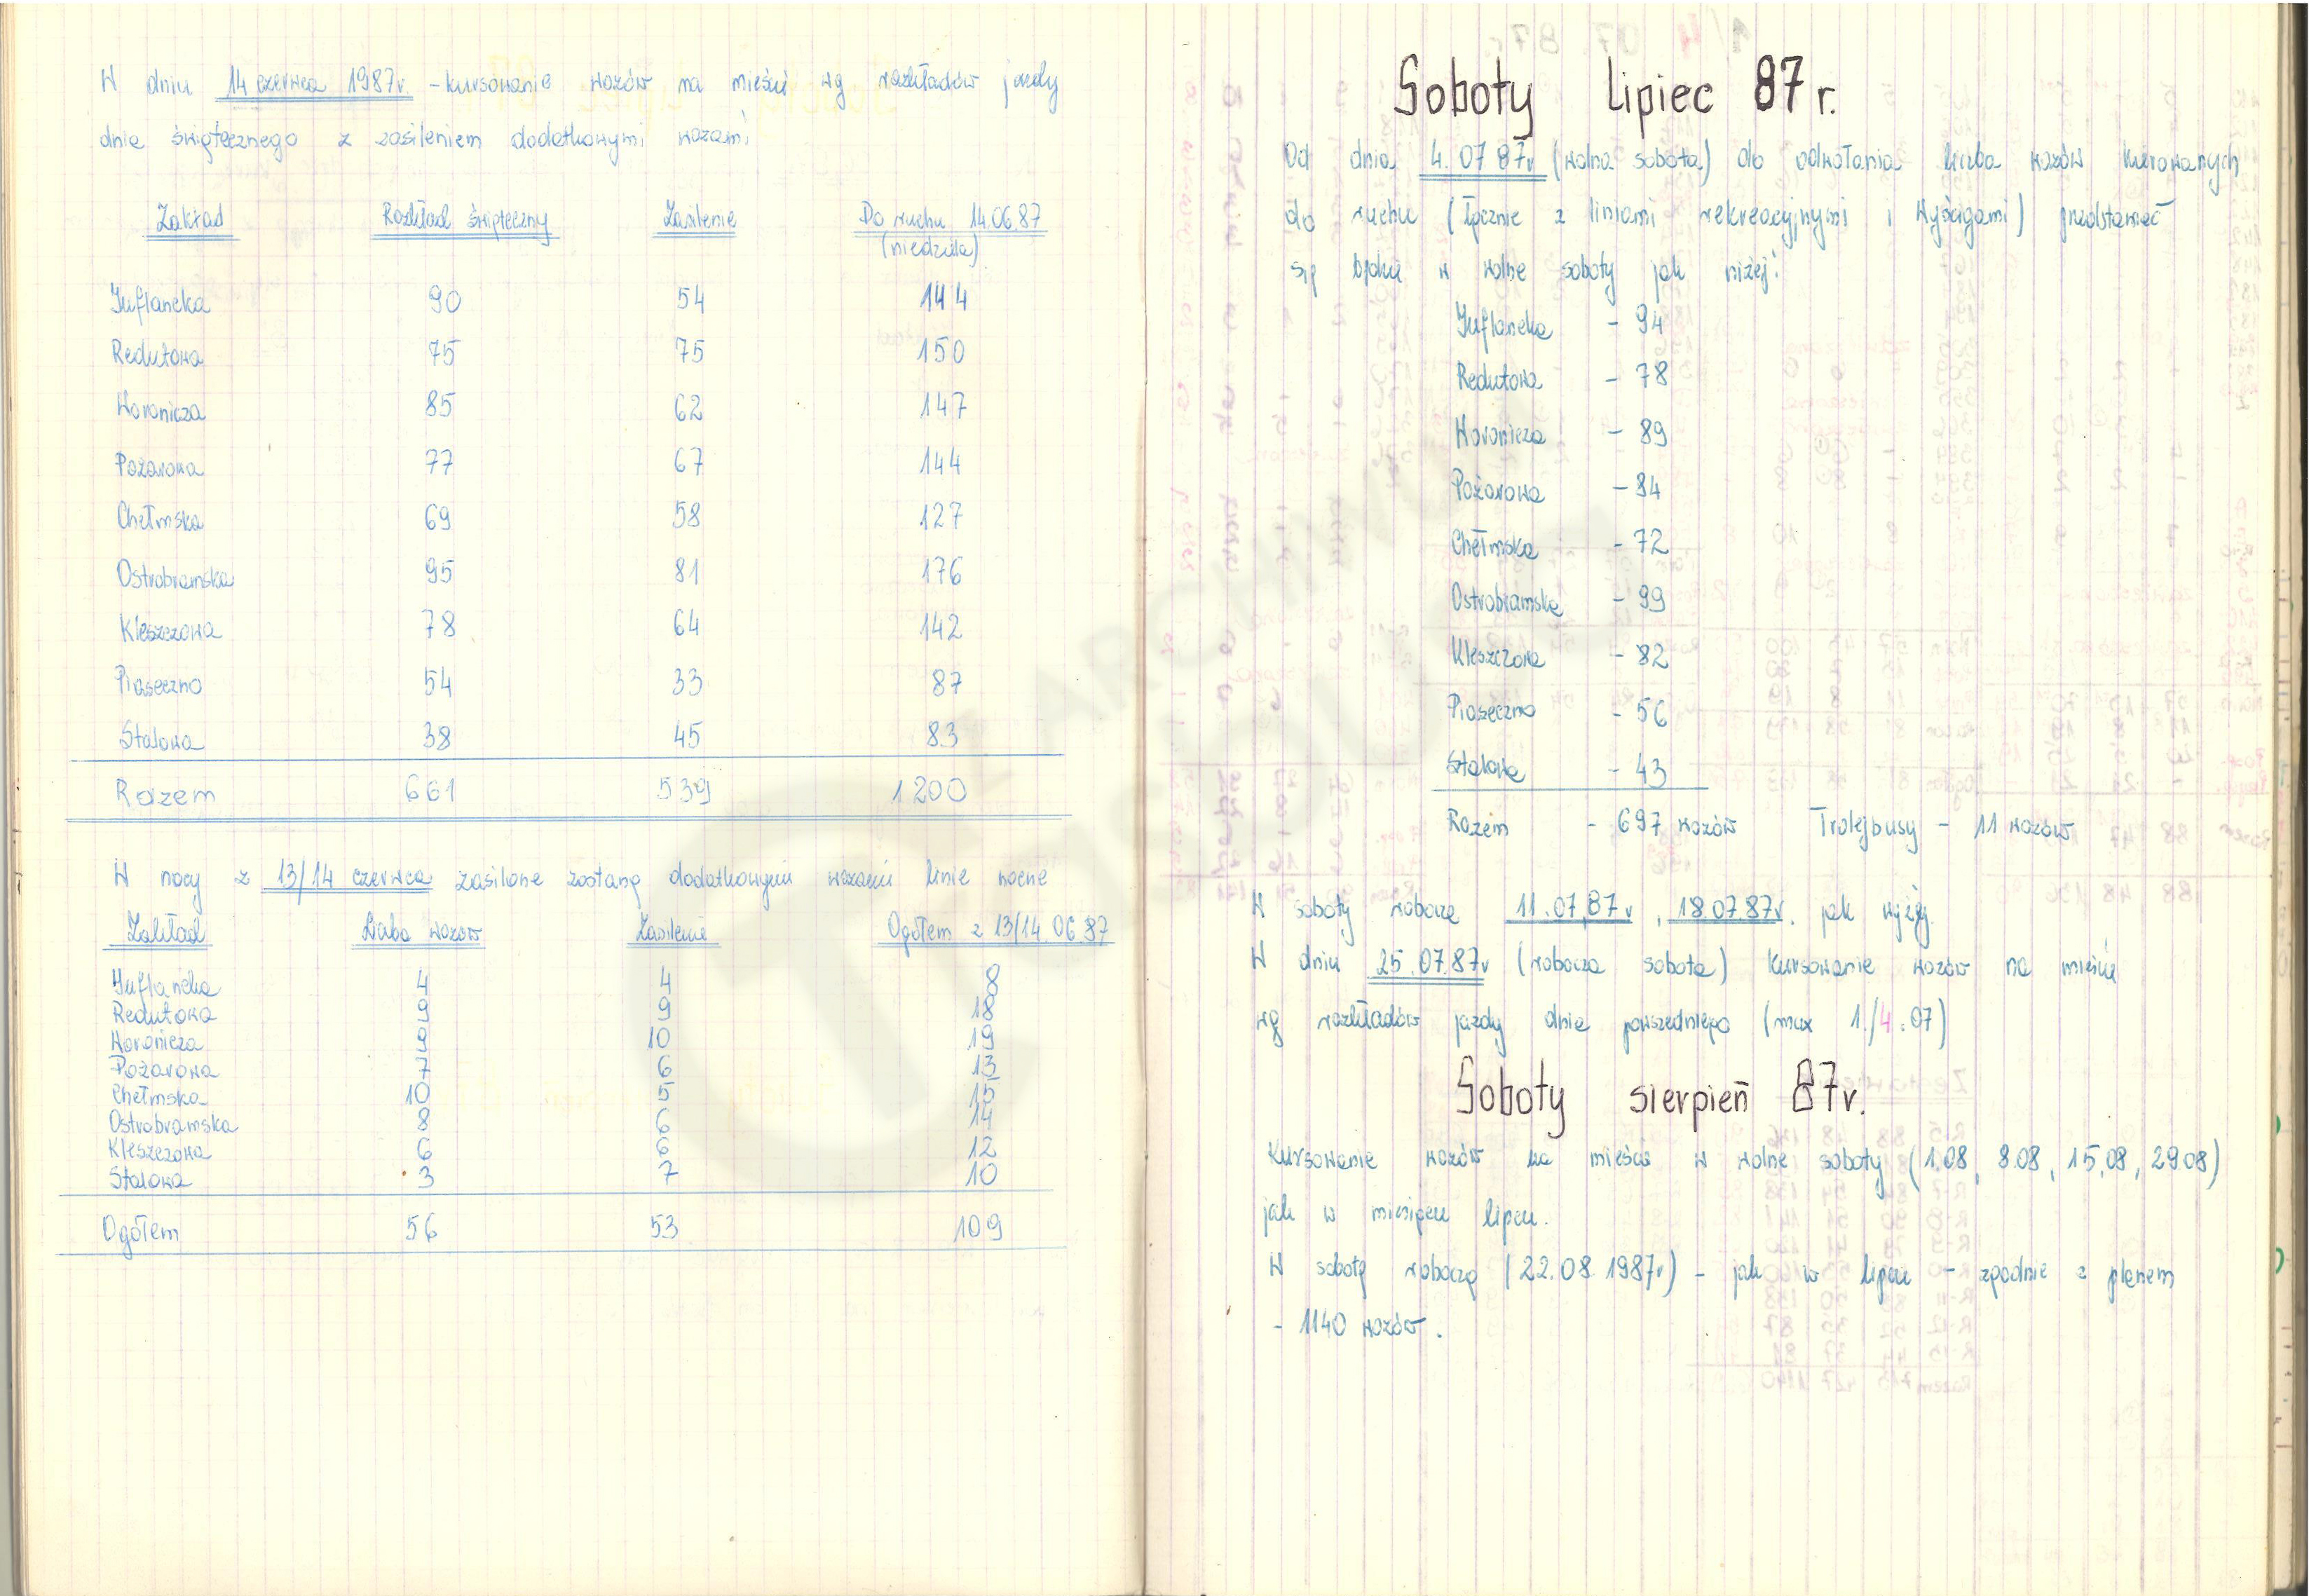 W dniu 14 czerwca 1987r. - kursowanie wozów na mieście wg rozkładów jazdy
dnia świątecznego z zasileniem dodatkowymi wozami
Zakład Rozkład świąteczny Zasilenie Do ruchu 14.06.87
(niedziela)
Inflancka 90 54 144
Redutowa 75 75 150
Woronicza 85 62 147
Pożarowa 77 67 144
Chełmska 69 58 127
Ostrobramska 95 81 176
Kleszczowa 78 64 142
Piaseczno 54 33 87
Stalowa 38 45 83
Razem 661 539 1200
W nocy z 13/14 czerwca zasilone zostaną dodatkowymi wozami linie nocne
Zakład Liczba wozów Zasilenie Ogółem z 13/14.06.87
Inflancka 4 4 8
Redutowa 9 9 18
Woronicza 9 10 19
Pożarowa 7 6 13
Chełmska 10 5 15
Ostrobramska 8 6 14
Kleszczowa 6 6 12
Stalowa 3 7 10
Ogółem 56 53 109
Soboty lipiec 87 r.
Od dnia 4.07 87r (wolna sobota) do odwołania liczba wozów kierowanych
do ruchu (łącznie z liniami rekreacyjnymi i Wyścigami) przedstawiać
się będzie w wolne soboty jak niżej:
Inflancka - 94
Redutowa - 78
Woronicza - 89
Pożarowa - 84
Chełmska - 72
Ostrobramska - 99
Kleszczowa - 82
Piaseczno - 56
Stalowa - 43
Razem - 697 wozów Trolejbusy - 11 wozów
W soboty robocze 11.07.87r, 18.07.87r. jak wyżej.
W dniu 25.07.87r (robocza sobota) kursowanie wozów na mieście
wg rozkładów jazdy dnia powszedniego (max 1./4.07)
Soboty sierpień 87r.
Kursowanie wozów na mieście w wolne soboty (1.08, 8.08, 15.08, 29.08)
jak w miesiącu lipcu.
W sobotę roboczą (22.08.1987r) - jak w lipcu - zgodnie z planem
- 1140 wozów.
ARCHIWUM